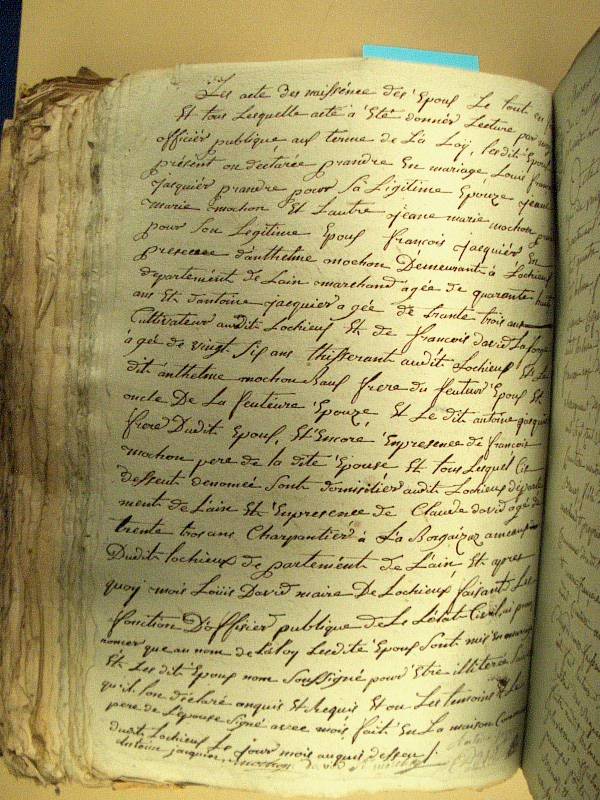 Les acte des naissénce des Epoux Le tout en
Et tous Lesquelle acte à Eté donner Lecture par
officiér publique aux terme de La Loÿ. Lesdit Epoux
présent on declarée prandre En mariage, Louis françois
Jacquiér prandre pour Sa Ligitime Epouze Jeane
marie mochon Et Lautre Jeane marie mochon
pour Son Legitime Epoux françois Jacquiér En
presence d'anthelme mochon Demeurant à Lochieux
departemént de Lain marchand agée de quarante huit
ans Et dantoine Jacquiér agée de trante trois ans
Cultivateur audit Lochieux Et de françois david La
agé de vingt six ans thisserant audit Lochieux Et Le
dit anthelme mochon Bauf frere du feuteur Epoux Et
oncle De La feuteure Epouze Et Le dit antoine Jacquiér
frere Dudit Epoux, Et Encore Enpresence de françois
mochon pere de la dite Epouse Et tous Lesquel Cis
dessent denomeé Sont domicilier audit Lochieux départe
ment de Lain Et Enpresence de Claude david agé de
trente trois ans Charpantier à La
Dudit lochieux de partemént de Lain Et apres
quoy mois Loüis David maire De Lochieux faisant Les
fonction D'officier publique de Le Létat Civil, ai
nomer que au nom de la loy Lesdite Epoux Sont mis En mariage
Et Les dit Epoux nom Soussigné pour Etre illitérée
qu'il on declaré anquis Et Requis Et on Les temoins Et Le
pere de L'epouse Signé avec mois fait En La maison Comune
dudit Lochieux Le Jour mois anquis desseu /.
antoine jacquier mochon david